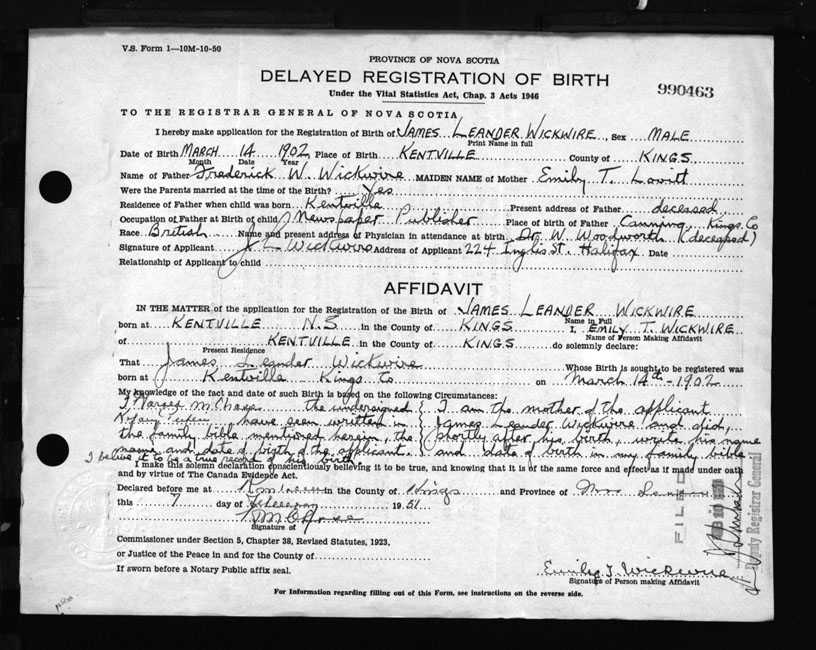 V.S. Form 1—10M-10-50
PROVINCE OF NOVA SCOTIA
DELAYED REGISTRATION OF BIRTH
990463
Under the Vital Statistics Act, Chap. 3 Acts 1946
TO THE REGISTRAR GENERAL OF NOVA SCOTIA
I hereby make application for the Registration of Birth of JAMES LEANDER WICKWIRE, Sex MALE
Print Name in full
Date of Birth MARCH 14 1902, Place of Birth KENTVILLE County of KINGS
Month Date Year
Name of Father Frederick W. Wickwire MAIDEN NAME of Mother Emily T. Lovitt
Were the Parents married at the time of the Birth? Yes
Residence of Father when child was born Kentville Present address of Father deceased
Occupation of Father at Birth of child Newspaper Publisher Place of birth of Father Canning, Kings Co
Race British Name and present address of Physician in attendance at birth Dr. W. Woodworth (deceased)
Signature of Applicant J L Wickwire Address of Applicant 224 Inglis St. Halifax Date
Relationship of Applicant to child
AFFIDAVIT
IN THE MATTER of the application for the Registration of the Birth of JAMES LEANDER WICKWIRE
Name in Full
born at KENTVILLE N.S in the County of KINGS I, EMILY T. WICKWIRE
Name of Person Making Affidavit
of KENTVILLE in the County of KINGS do solemnly declare:
Present Residence
That James Leander Wickwire Whose Birth is sought to be registered was
born at Kentville Kings Co on March 14th-1902
My knowledge of the fact and date of such Birth is based on the following Circumstances:
I M Chase the undersigned I am the mother of the applicant
have seen written in James Leander Wickwire and did,
the family bible mentioned herein, the shortly after his birth, write his name
name and date of birth of the applicant. and date of birth in my family bible
I believe it to be a true record of his birth
I make this solemn declaration conscientiously believing it to be true, and knowing that it is of the same force and effect as if made under oath
and by virtue of The Canada Evidence Act.
Declared before me at in the County of Kings and Province of Nova Scotia
this 7 day of 1951
Signature of
Commissioner under Section 5, Chapter 38, Revised Statutes, 1923,
or Justice of the Peace in and for the County of
If sworn before a Notary Public affix seal.
Emily T. Wickwire
Signature of Person making Affidavit
For Information regarding filling out of this Form, see instructions on the reverse side.
FILED
Deputy Registrar General